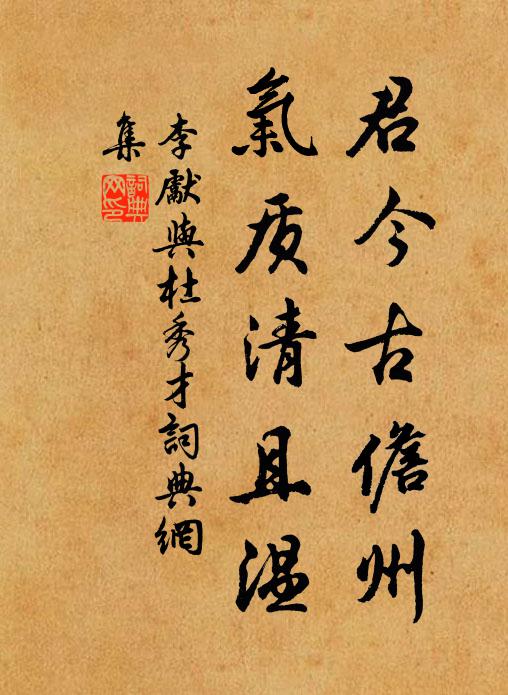 君今古儋州
氣质清且温
李獻與杜秀才詞典網
集
詞典
网印